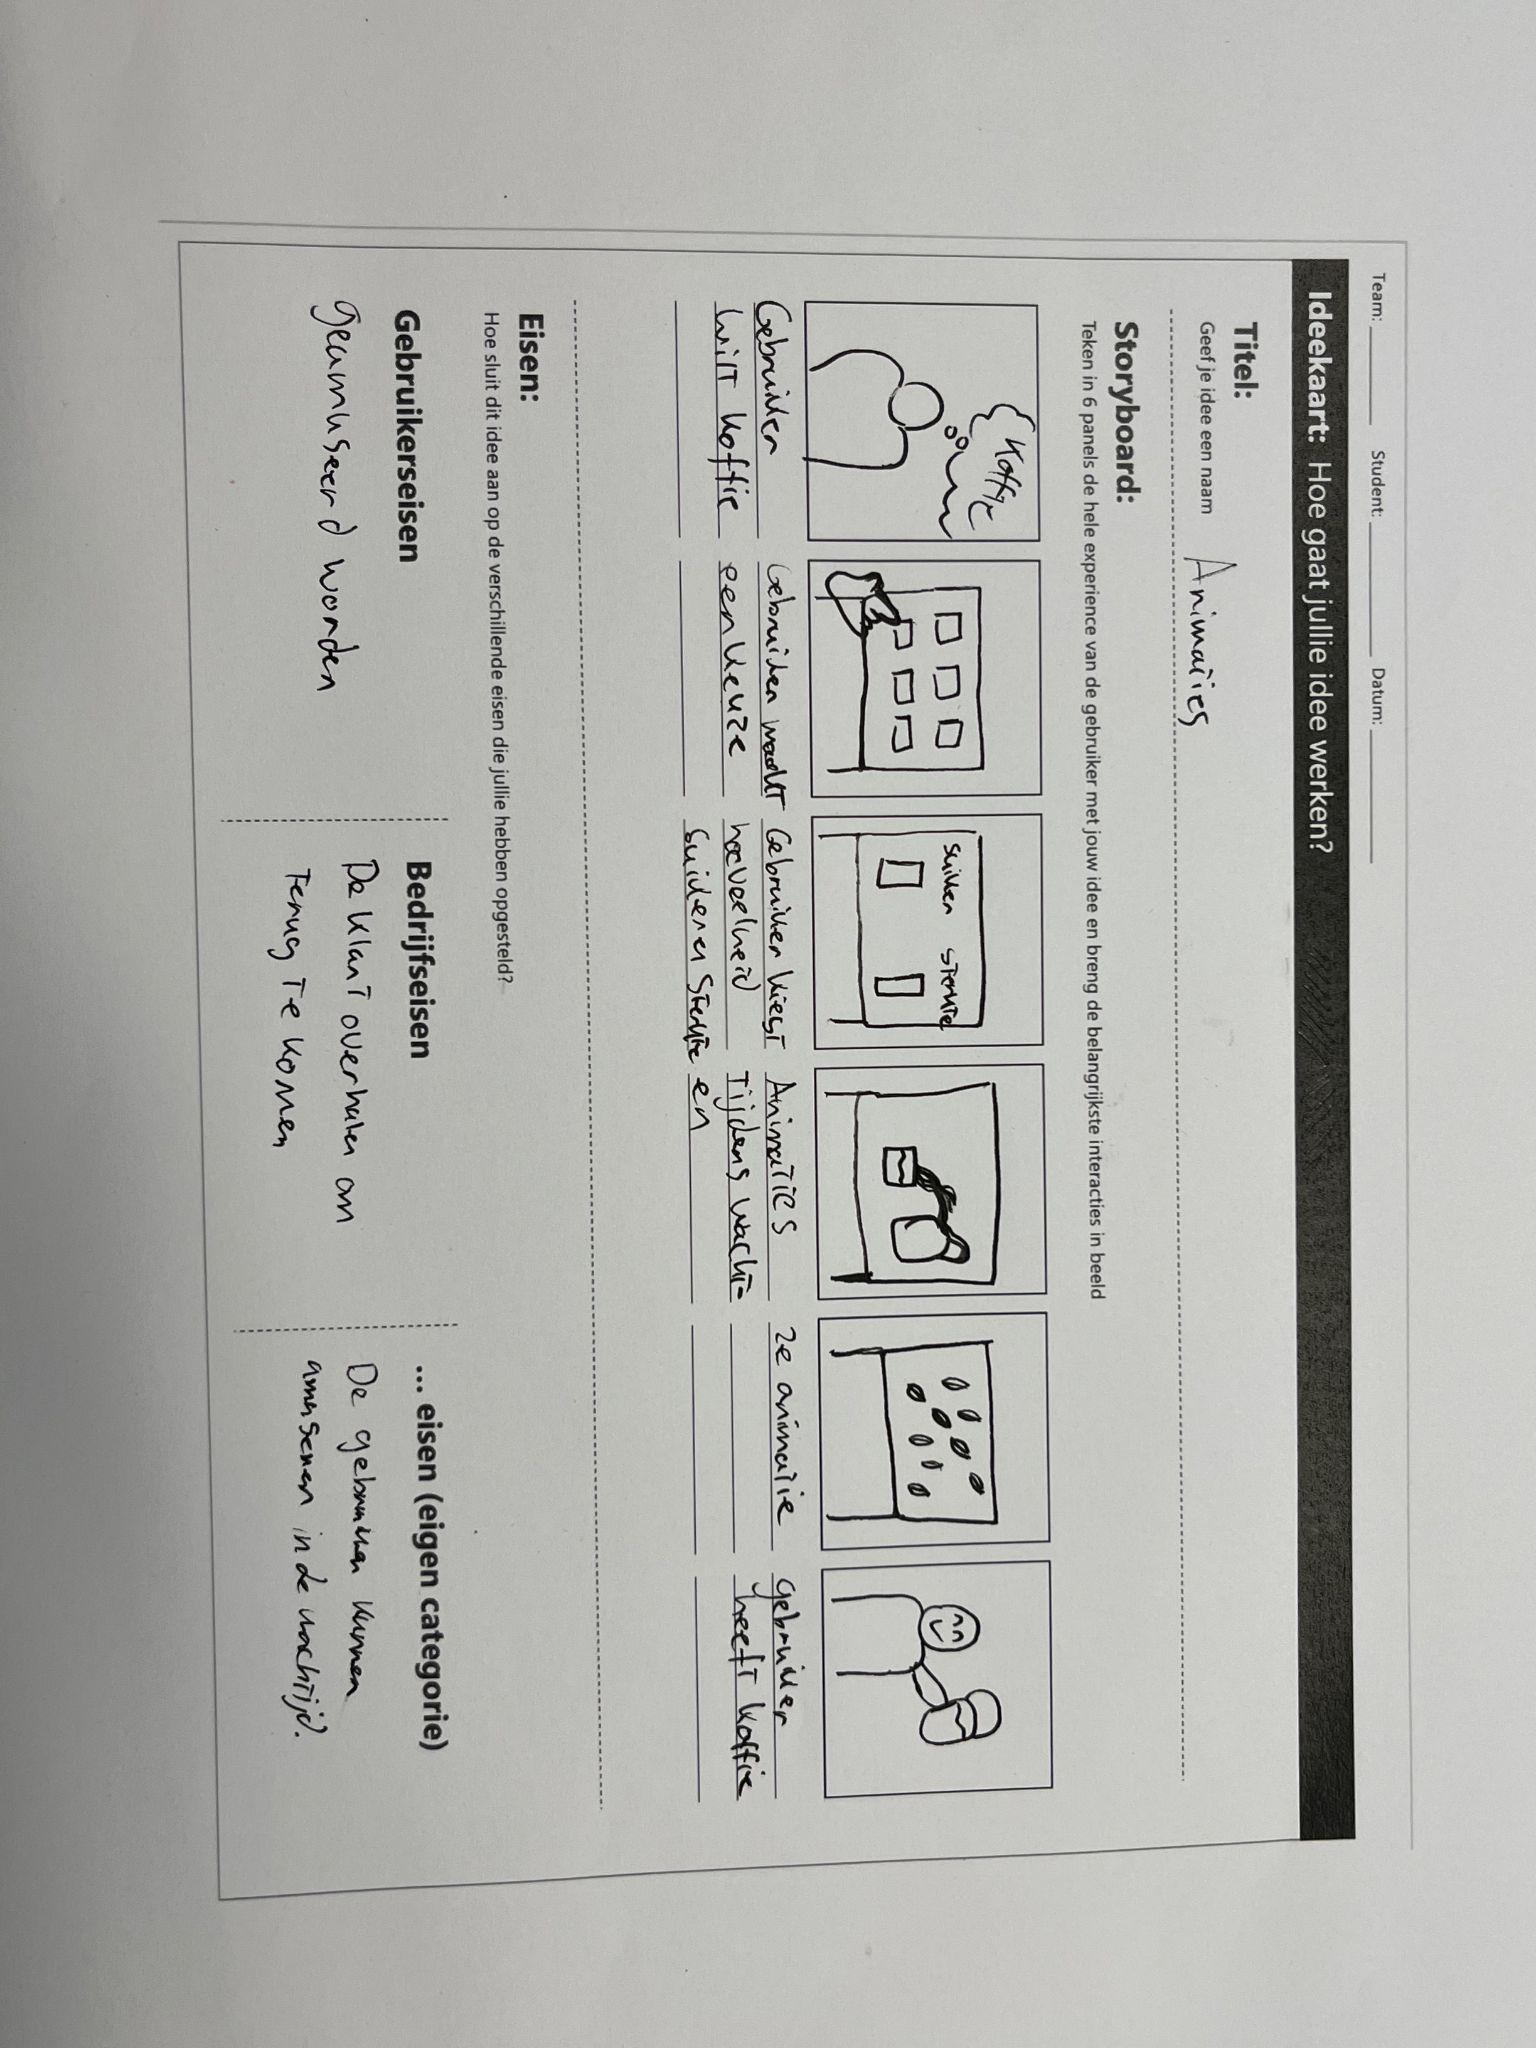 Team: Student: Datum:
Ideekaart: Hoe gaat jullie idee werken?
Titel:
Geef je idee een naam Animaties
Storyboard:
Teken in 6 panels de hele experience van de gebruiker met jouw idee en breng de belangrijkste interacties in beeld
Koffie
suiker sterkte
Gebruiker
wilt koffie
Gebruiker maakt
een keuze
Gebruiker kiest
hoeveelheid
suiker en sterkte
Animaties
tijdens wacht-
en
2e animatie
gebruiker
heeft koffie
Eisen:
Hoe sluit dit idee aan op de verschillende eisen die jullie hebben opgesteld?
Gebruikerseisen
geamuseerd worden
Bedrijfseisen
De klant overhalen om
terug te komen
... eisen (eigen categorie)
De gebruiker kunnen
amuseren in de wachtijd.